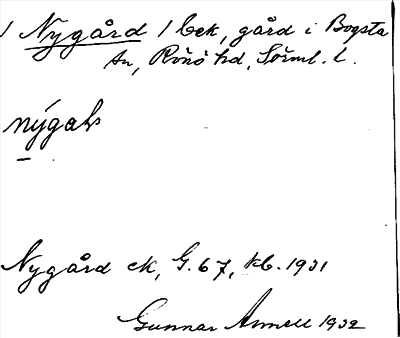 Nygård / bek, gård i Bogsta
sn, Rönö hd, Sörml. l.
nýgaḷs
Nygård ek, G. 67, kb. 1931
Gunnar 1932